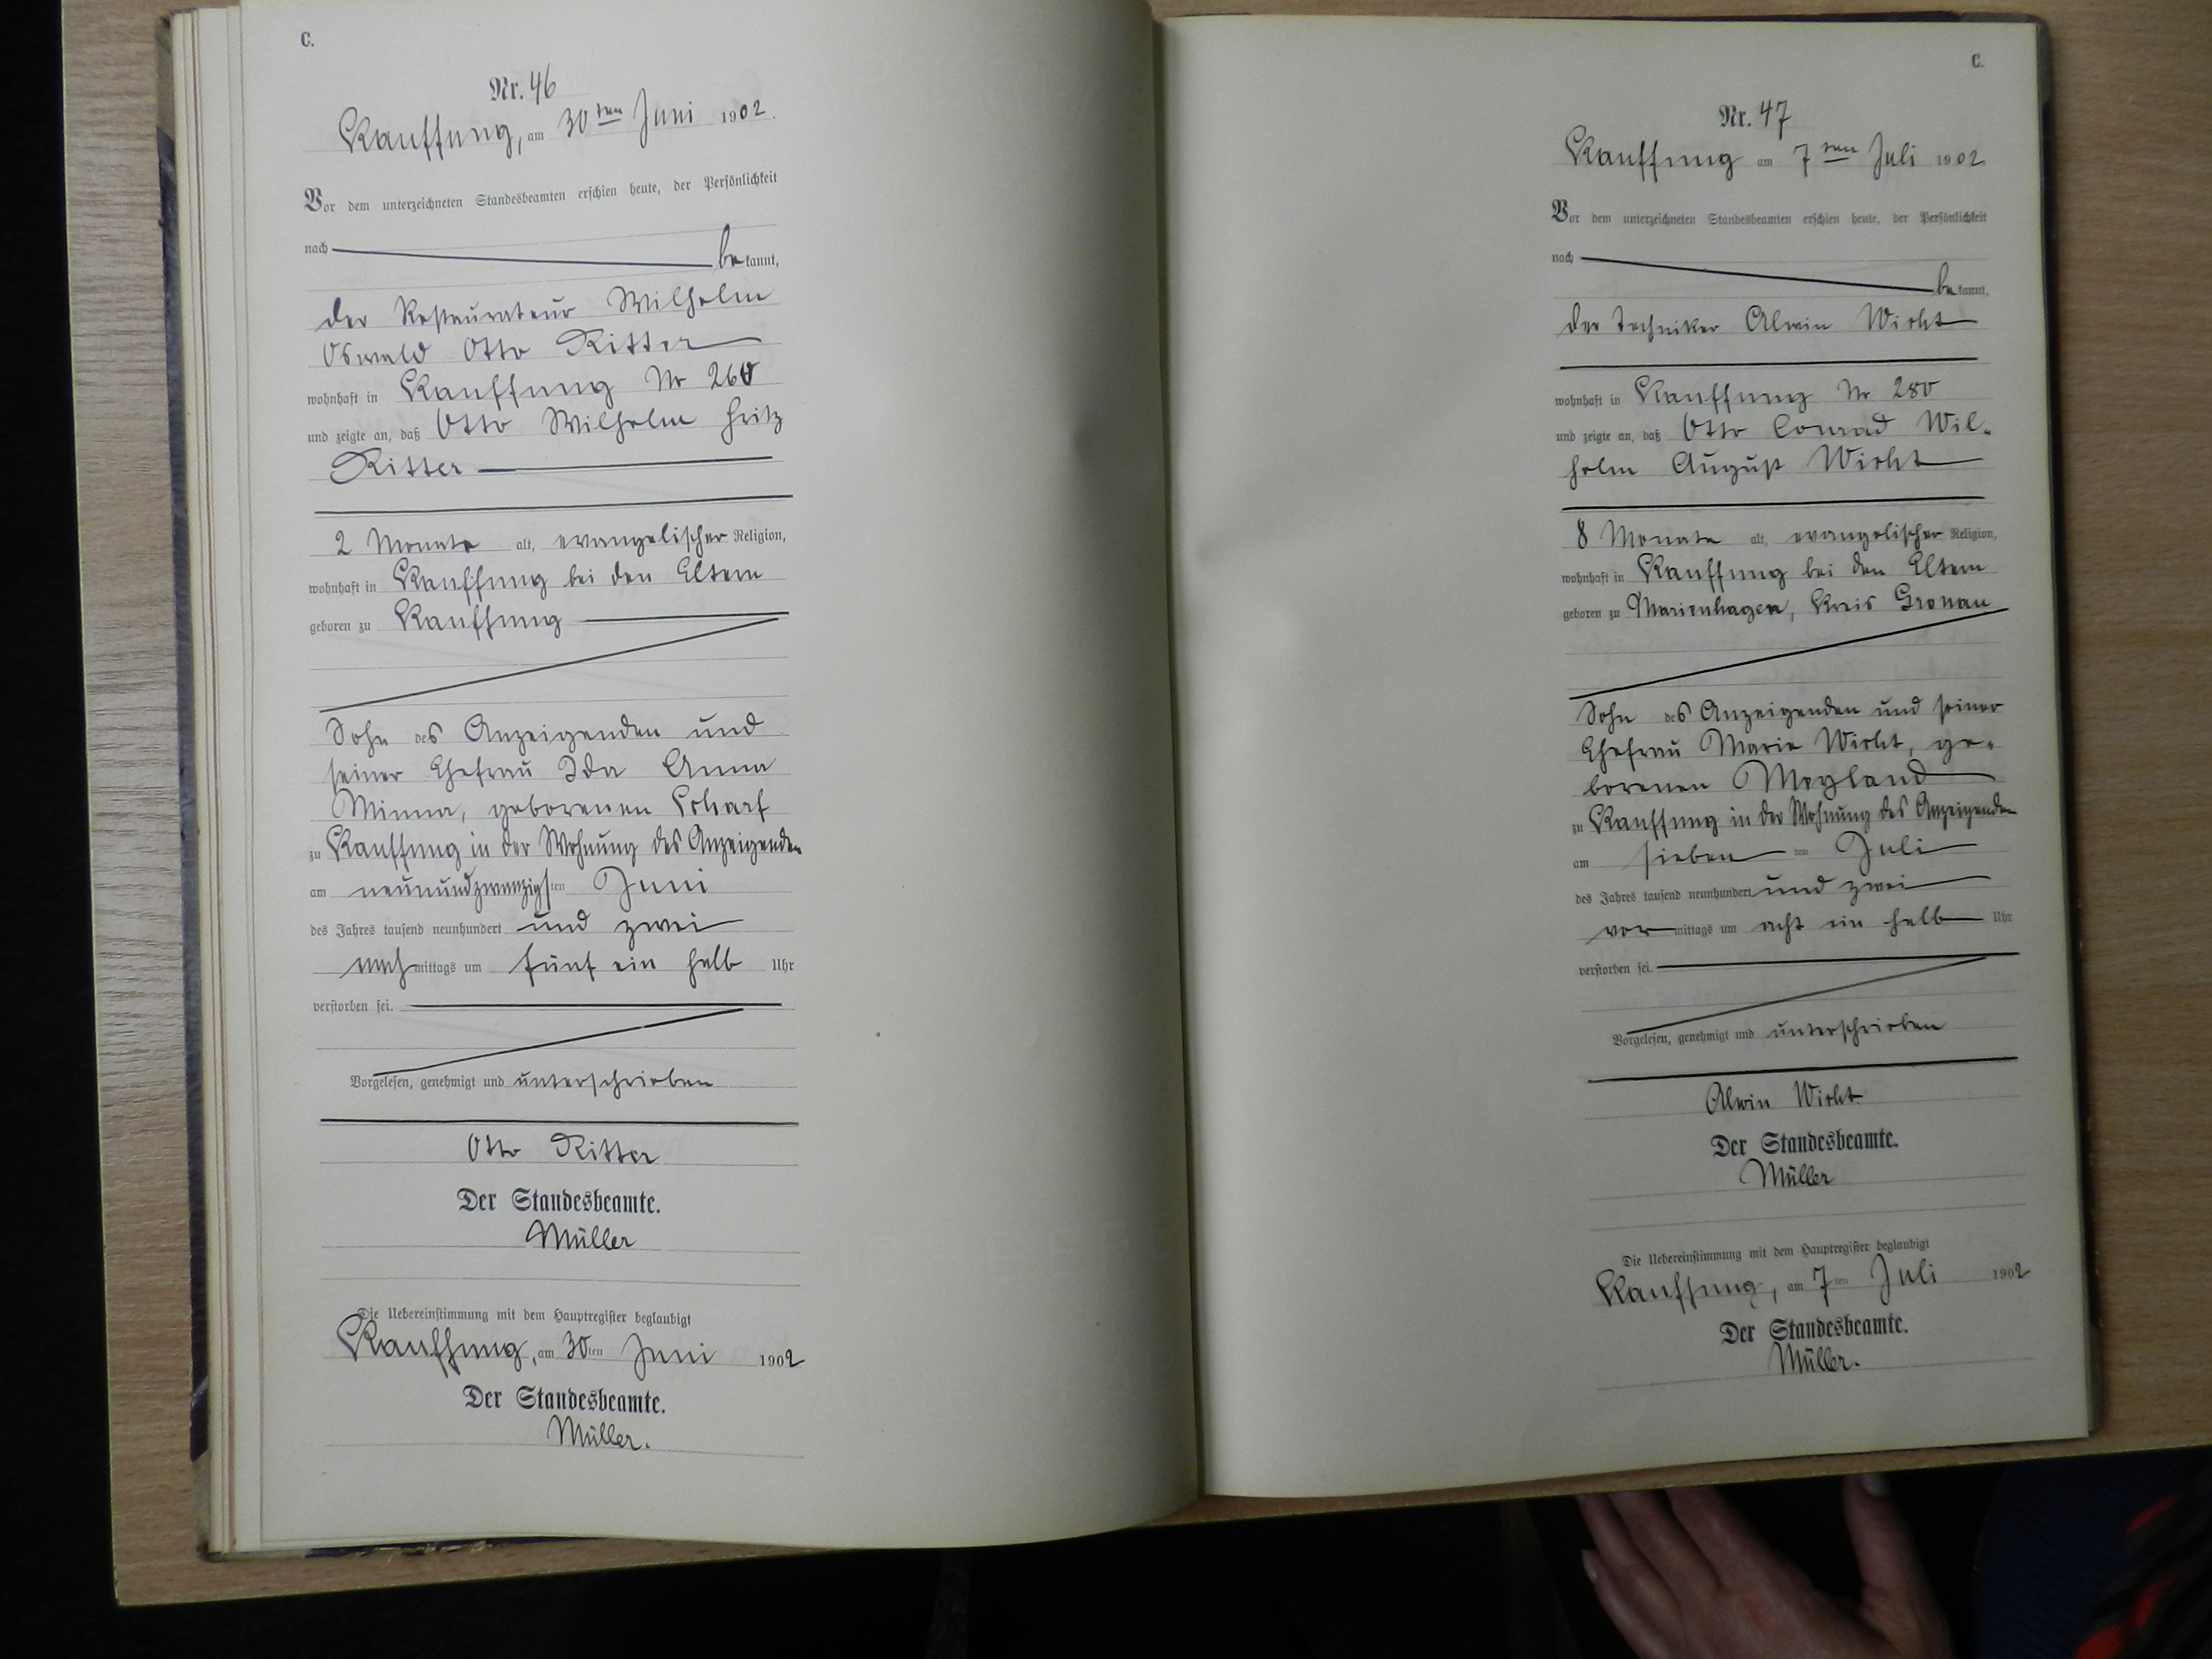 C.
Nr. 46
Kauffung, am 30ten Juni 1902.
Vor dem unterzeichneten Standesbeamten erschien heute, der Persönlichkeit
nach bekannt,
der Restaurateur Wilhelm
Oswald Otto Ritter
wohnhaft in Kauffung Nr 260
und zeigte an, daß Otto Wilhelm Fritz
Ritter
2 Monate alt, evangelischer Religion,
wohnhaft in Kauffung bei den Eltern
geboren zu Kauffung
Sohn des Anzeigenden und
seiner Ehefrau Ida Anna
Minna, geborenen Scharf
zu Kauffung in der Wohnung des Anzeigenden
am neunundzwanzigsten Juni
des Jahres tausend neunhundert und zwei
nachmittags um fünf ein halb Uhr
verstorben sei.
Vorgelesen, genehmigt und unterschrieben
Otto Ritter
Der Standesbeamte.
Müller
Die Uebereinstimmung mit dem Hauptregister beglaubigt
Kauffung, am 30ten Juni 1902
Der Standesbeamte.
Müller.
C.
Nr. 47
Kauffung am 7ten Juli 1902
Vor dem unterzeichneten Standesbeamten erschien heute, der Persönlichkeit
nach bekannt,
der Techniker Alwin Wicht
wohnhaft in Kauffung Nr 280
und zeigte an, daß Otto Conrad Wil-
helm August Wicht
8 Monate alt, evangelischer Religion,
wohnhaft in Kauffung bei den Eltern
geboren zu Marienhagen, Kreis Gronau
Sohn des Anzeigenden und seiner
Ehefrau Marie Wicht, ge-
borenen Meyland
zu Kauffung in der Wohnung des Anzeigenden
am siebenten Juli
des Jahres tausend neunhundert und zwei
vormittags um acht ein halb Uhr
verstorben sei.
Vorgelesen, genehmigt und unterschrieben
Alwin Wicht
Der Standesbeamte.
Müller
Die Uebereinstimmung mit dem Hauptregister beglaubigt
Kauffung, am 7ten Juli 1902
Der Standesbeamte.
Müller.